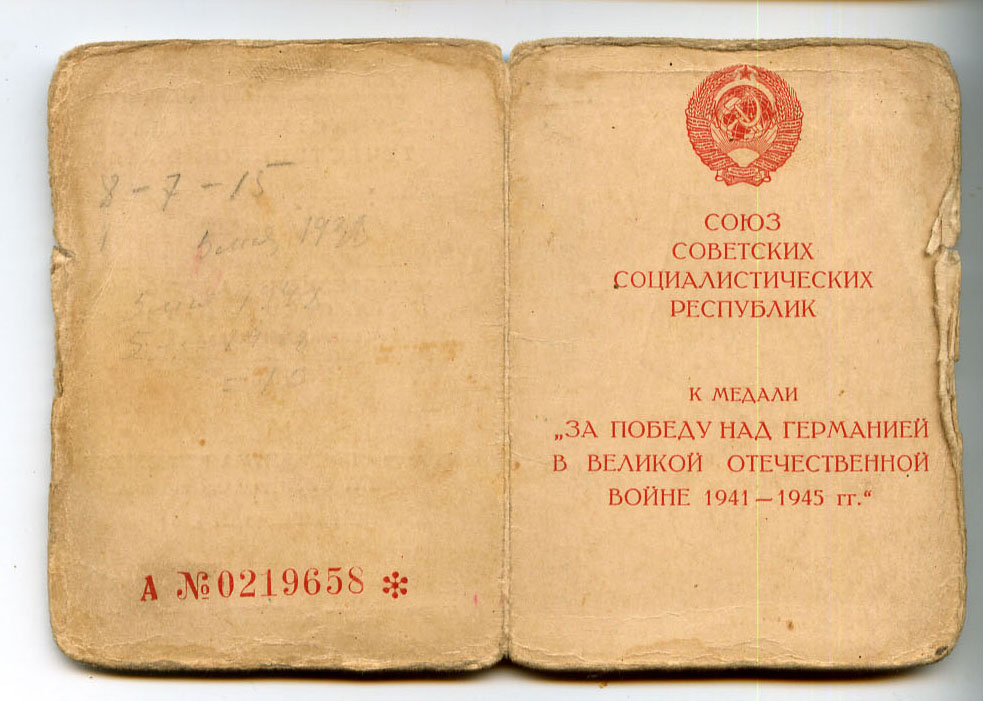 8-7-15
А №0219658
СОЮЗ
СОВЕТСКИХ
СОЦИАЛИСТИЧЕСКИХ
РЕСПУБЛИК
К МЕДАЛИ
„ЗА ПОБЕДУ НАД ГЕРМАНИЕЙ
В ВЕЛИКОЙ ОТЕЧЕСТВЕННОЙ
ВОЙНЕ 1941—1945 гг.“